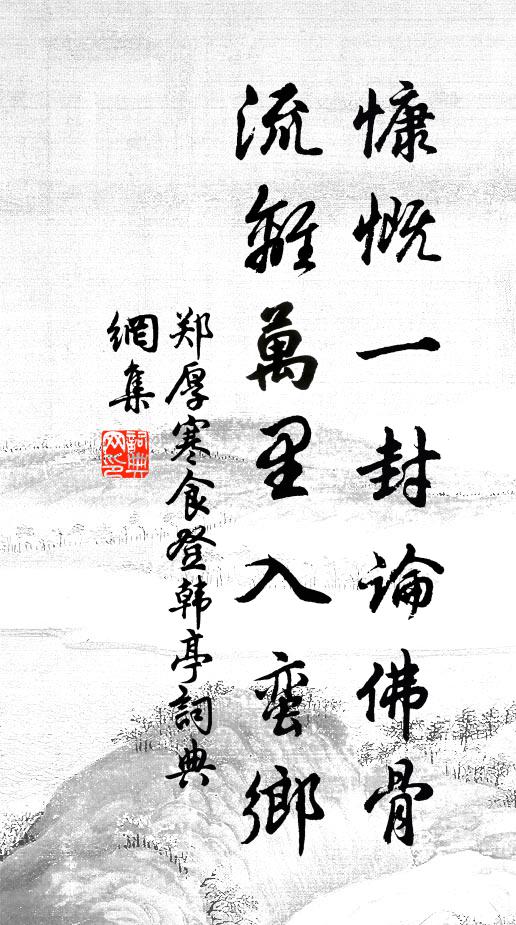 慷慨一封论佛骨
流離萬里入蛮鄉
郑厚寒食登韩亭詞典
網集
詞典网印